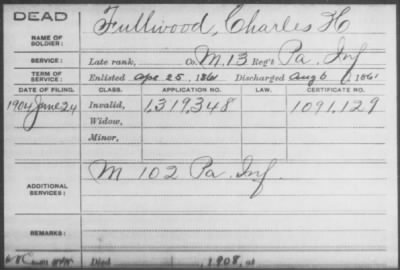 DEAD
NAME OF SOLDIER: Fullwood, Charles H
SERVICE: Late rank, Co. M, 13 Reg't Pa. Inf
TERM OF SERVICE: Enlisted Apr. 25, 1861 Discharged Aug 6, 1861
DATE OF FILING. CLASS. APPLICATION NO. LAW. CERTIFICATE NO.
1904 June 24 Invalid, 1,319,348 1,091,129
Widow,
Minor,
ADDITIONAL SERVICES: M 102 Pa. Inf.
REMARKS:
Died 1908, at